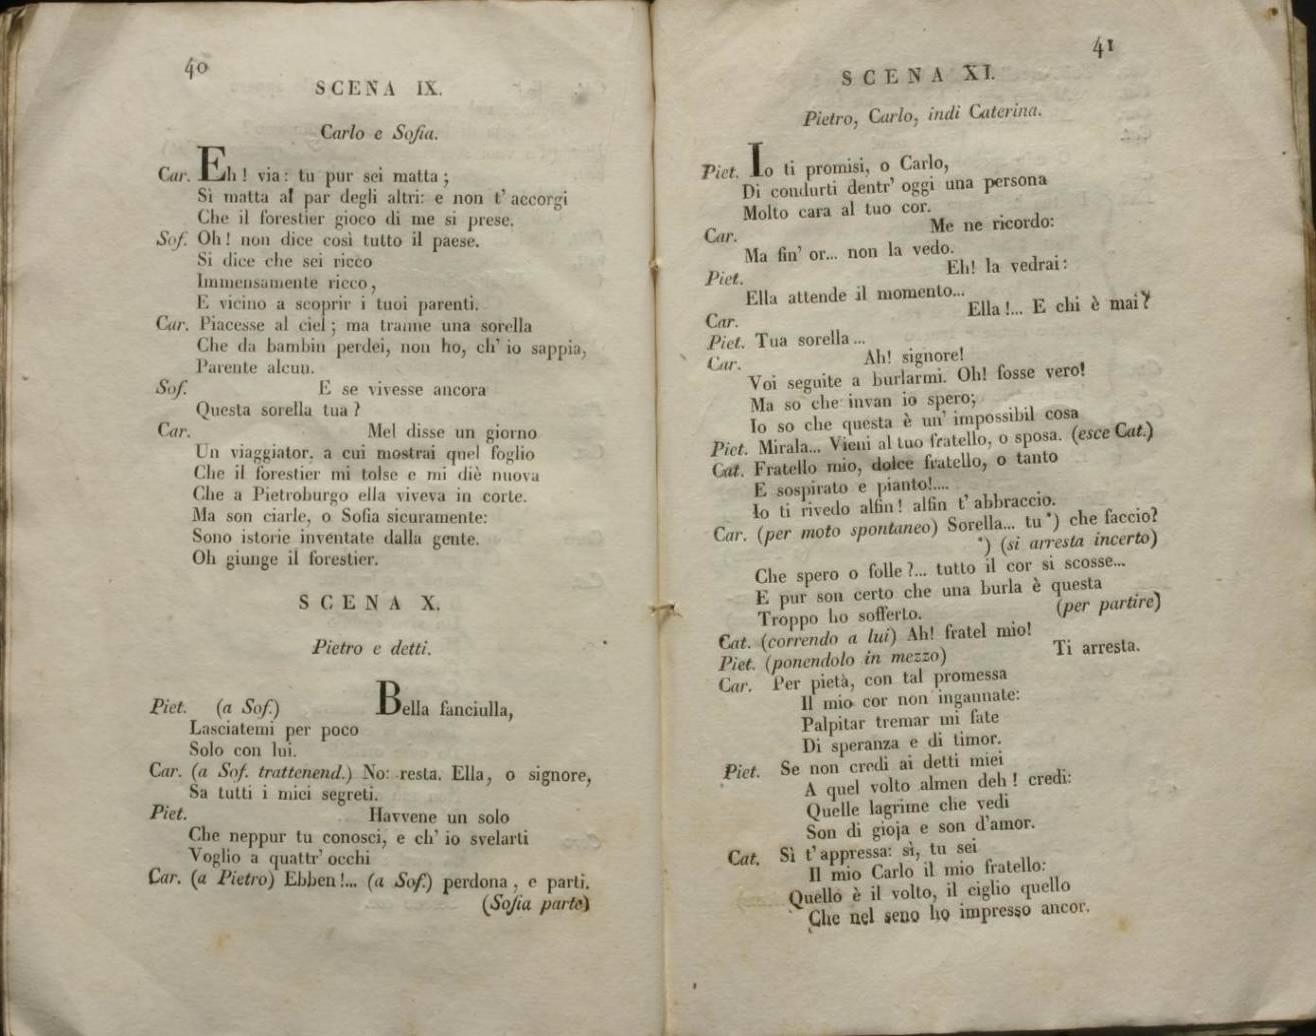 40
SCENA IX.
Carlo e Sofia.
Car. Eh! via: tu pur sei matta;
Sì matta al par degli altri: e non t' accorgi
Che il forestier gioco di me si prese.
Sof. Oh! non dice così tutto il paese.
Si dice che sei ricco
Immensamente ricco,
E vicino a scoprir i tuoi parenti.
Car. Piacesse al ciel; ma tranne una sorella
Che da bambin perdei, non ho, ch' io sappia,
Parente alcun.
Sof. E se vivesse ancora
Questa sorella tua?
Car. Mel disse un giorno
Un viaggiator, a cui mostrai quel foglio
Che il forestier mi tolse e mi diè nuova
Che a Pietroburgo ella viveva in corte.
Ma son ciarle, o Sofia sicuramente:
Sono istorie inventate dalla gente.
Oh giunge il forestier.
SCENA X.
Pietro e detti.
Piet. (a Sof.) Bella fanciulla,
Lasciatemi per poco
Solo con lui.
Car. (a Sof. trattenend.) No: resta. Ella, o signore,
Sa tutti i miei segreti.
Piet. Havvene un solo
Che neppur tu conosci, e ch' io svelarti
Voglio a quattr' occhi
Car. (a Pietro) Ebben!... (a Sof.) perdona, e parti.
(Sofia parte)
41
SCENA XI.
Pietro, Carlo, indi Caterina.
Piet. Io ti promisi, o Carlo,
Di condurti dentr' oggi una persona
Molto cara al tuo cor.
Car. Me ne ricordo:
Ma fin' or... non la vedo.
Piet. Eh! la vedrai:
Ella attende il momento...
Car. Ella!... E chi è mai?
Piet. Tua sorella...
Car. Ah! signore!
Voi seguite a burlarmi. Oh! fosse vero!
Ma so che invan io spero;
Io so che questa è un' impossibil cosa
Piet. Mirala... Vieni al tuo fratello, o sposa. (esce Cat.)
Cat. Fratello mio, dolce fratello, o tanto
E sospirato e pianto!....
Io ti rivedo alfin! alfin t' abbraccio.
Car. (per moto spontaneo) Sorella... tu *) che faccio?
*) (si arresta incerto)
Che spero o folle?... tutto il cor si scosse...
E pur son certo che una burla è questa
Troppo ho sofferto. (per partire)
Cat. (correndo a lui) Ah! fratel mio!
Piet. (ponendolo in mezzo) Ti arresta.
Car. Per pietà, con tal promessa
Il mio cor non ingannate:
Palpitar tremar mi fate
Di speranza e di timor.
Piet. Se non credi ai detti miei
A quel volto almen deh! credi:
Quelle lagrime che vedi
Son di gioja e son d'amor.
Cat. Sì t' appressa: sì, tu sei
Il mio Carlo il mio fratello:
Quello è il volto, il ciglio quello
Che nel seno ho impresso ancor.